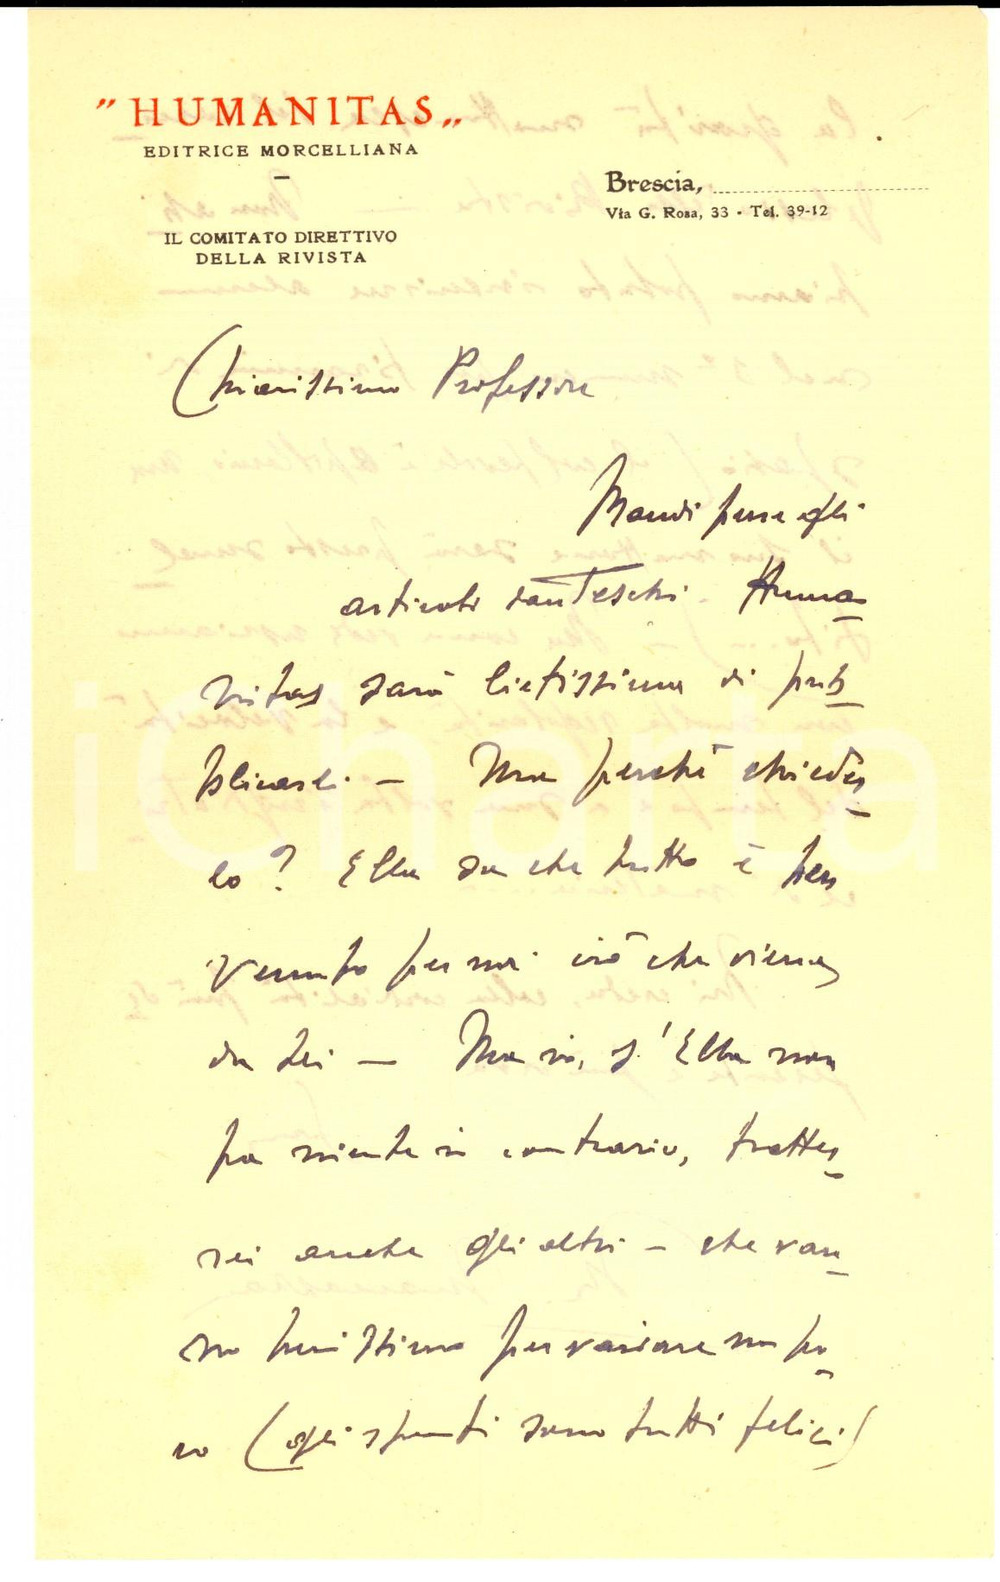 "HUMANITAS„
EDITRICE MORCELLIANA
IL COMITATO DIRETTIVO
DELLA RIVISTA
Brescia,
Via G. Rosa, 33 - Tel. 39-12
Chiarissimo Professore
Mandi pure gli
articoli danteschi. Huma-
nitas sarà lietissima di pub-
blicarli — Ma perché chieder-
lo? Ella sa che tutto è ben
venuto per noi ciò che viene
da Lei — Ma io, s'Ella non
ha niente in contrario, tratter-
rei anche gli altri — che van-
no benissimo per variare un po-
co (gli spunti sono tutti felici)
iCharta